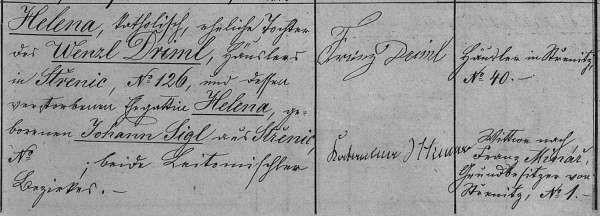 Helena, katholisch, eheliche Tochter
des Wenzl Dreiml, Häuslers
in Střenic, No 126, und dessen
verstorbenen Ehegattin Helena, ge-
borenen Johann Sigl aus Střenic,
No ; beide Leitomischler
Bezirkes. –
Franz
Häusler in Střenitz,
No 40. –
Wittwe nach
Franz
Grundbesitzer von
Střenitz, No 1. –